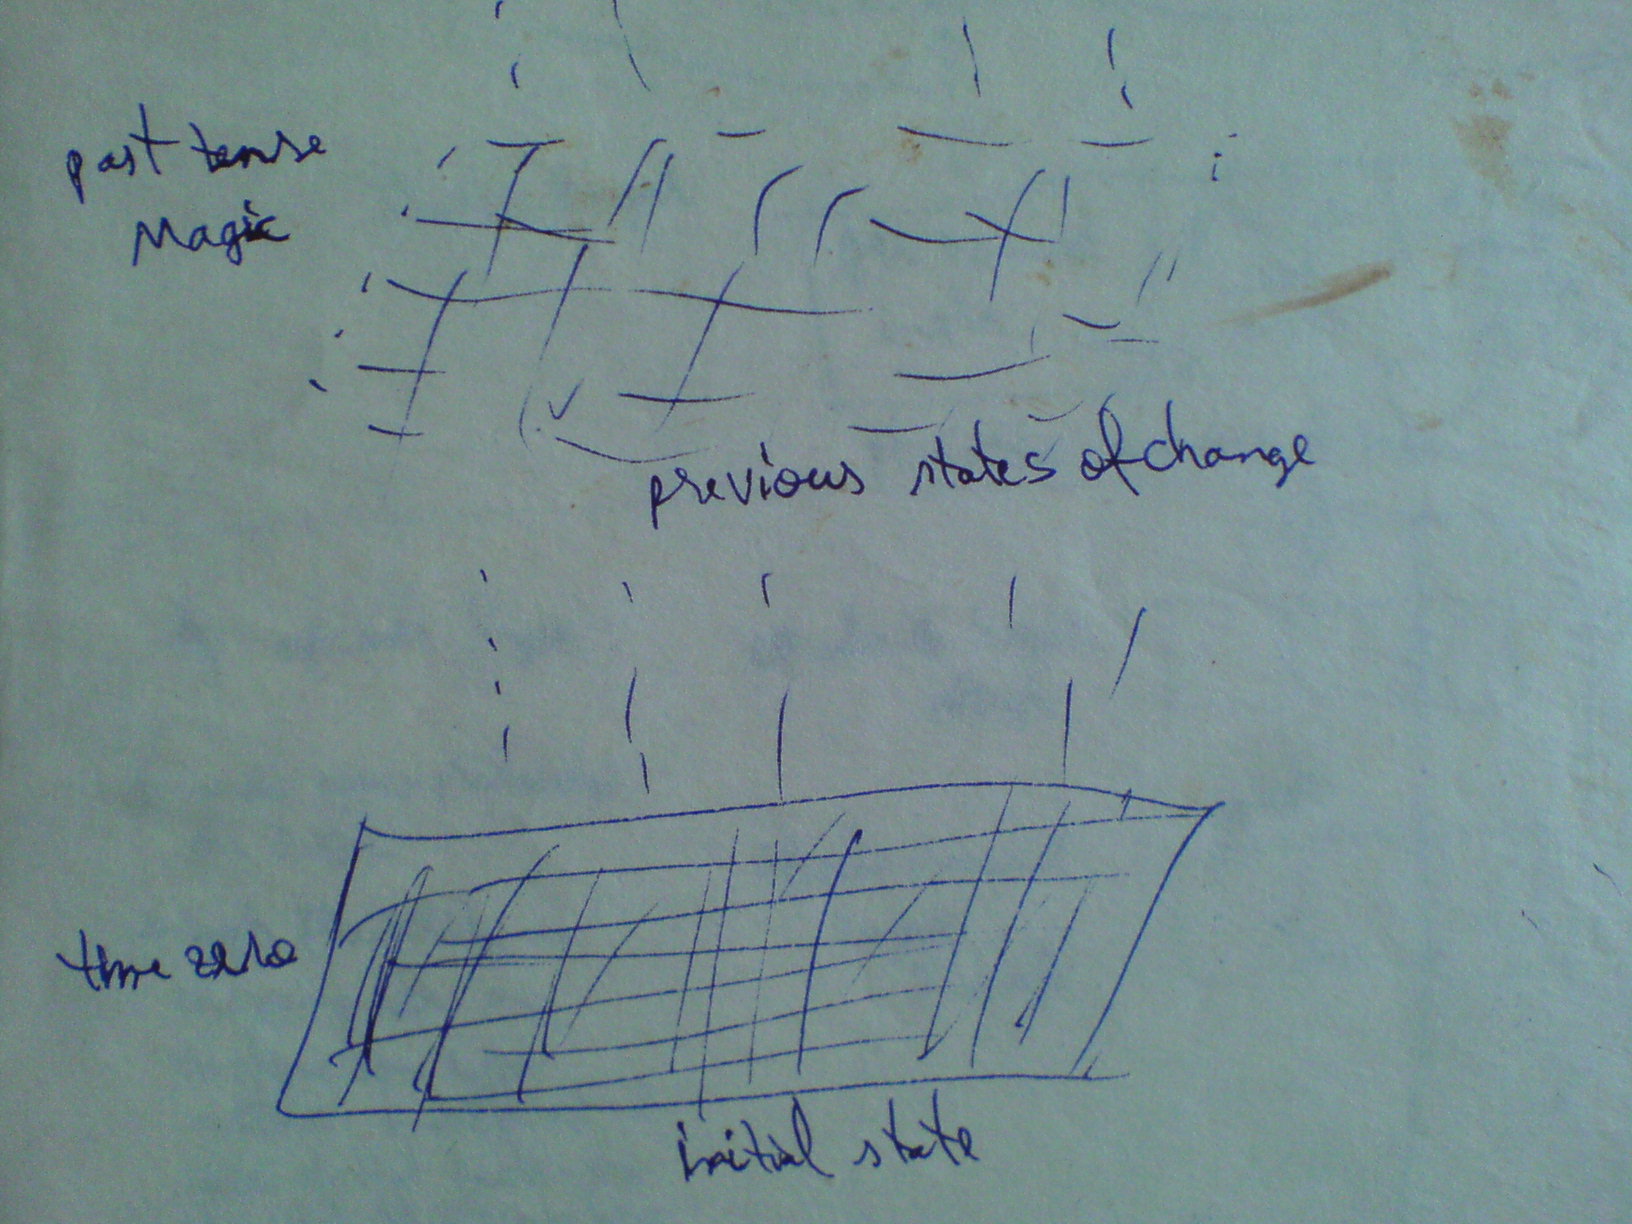 past tense
Magic
previous states of change
time zero
initial state